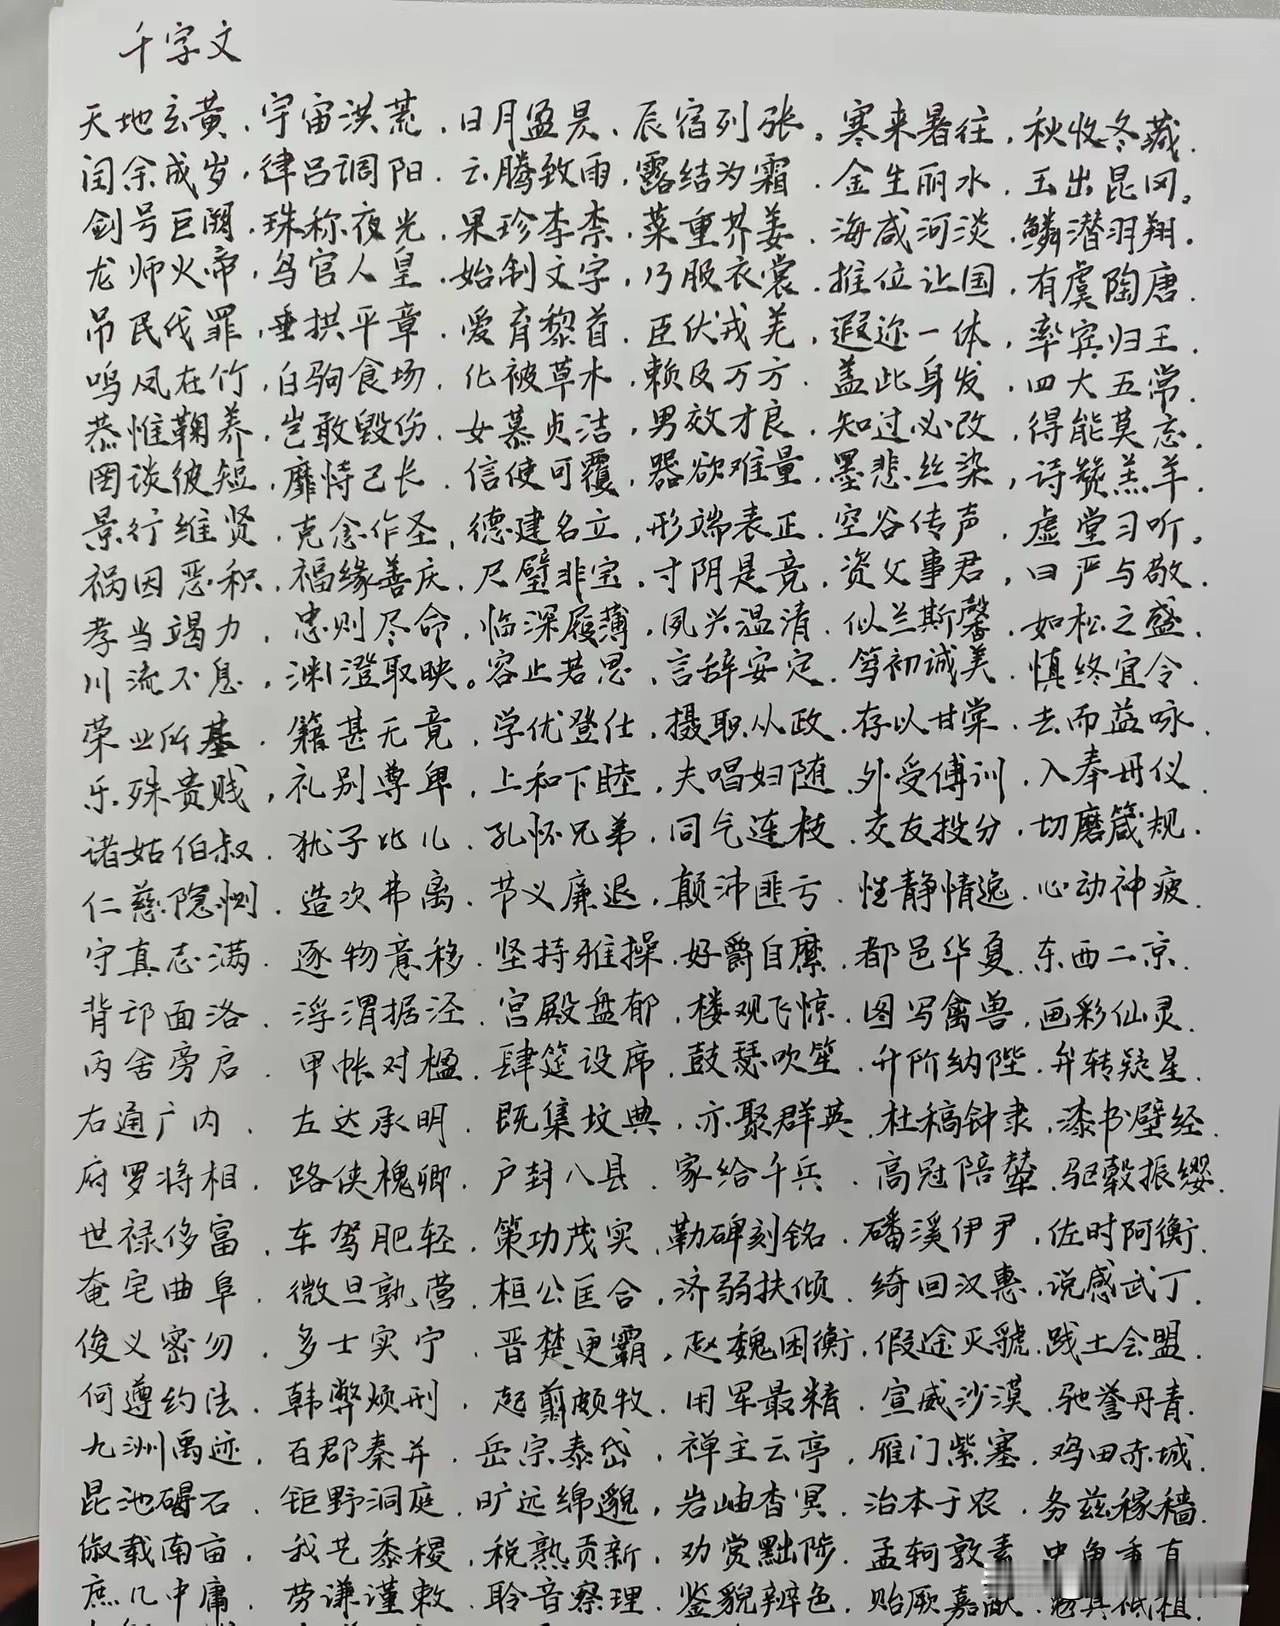 千字文
天地玄黄,宇宙洪荒,日月盈昃,辰宿列张。寒来暑往,秋收冬藏.
闰余成岁,律吕调阳.云腾致雨,露结为霜.金生丽水,玉出昆冈。
剑号巨阙,珠称夜光,果珍李柰,菜重芥姜,海咸河淡,鳞潜羽翔.
龙师火帝,鸟官人皇.始制文字,乃服衣裳.推位让国,有虞陶唐.
吊民伐罪,垂拱平章.爱育黎首,臣伏戎羌,遐迩一体,率宾归王.
鸣凤在竹,白驹食场.化被草木,赖及万方.盖此身发,四大五常.
恭惟鞠养,岂敢毁伤.女慕贞洁,男效才良.知过必改,得能莫忘.
罔谈彼短,靡恃己长.信使可覆,器欲难量.墨悲丝染,诗赞羔羊.
景行维贤,克念作圣,德建名立,形端表正.空谷传声,虚堂习听。
祸因恶积,福缘善庆,尺璧非宝,寸阴是竞,资父事君,曰严与敬.
孝当竭力,忠则尽命,临深履薄,夙兴温清.似兰斯馨,如松之盛.
川流不息,渊澄取映。容止若思,言辞安定.笃初诚美.慎终宜令.
荣业所基.籍甚无竟,学优登仕,摄职从政,存以甘棠.去而益咏.
乐殊贵贱,礼别尊卑,上和下睦,夫唱妇随,外受傅训,入奉母仪.
诸姑伯叔.犹子比儿.孔怀兄弟,同气连枝.交友投分,切磨箴规.
仁慈隐恻.造次弗离.节义廉退,颠沛匪亏.性静情逸.心动神疲.
守真志满.逐物意移.坚持雅操.好爵自縻.都邑华夏.东西二京.
背邙面洛.浮渭据泾.宫殿盘郁,楼观飞惊.图写禽兽,画彩仙灵.
丙舍旁启.甲帐对楹.肆筵设席.鼓瑟吹笙.升阶纳陛.弁转疑星.
右通广内.左达承明.既集坟典,亦聚群英.杜稿钟隶,漆书壁经.
府罗将相.路侠槐卿.户封八县.家给千兵.高冠陪辇.驱毂振缨.
世禄侈富,车驾肥轻.策功茂实,勒碑刻铭.磻溪伊尹,佐时阿衡.
奄宅曲阜.微旦孰营.桓公匡合,济弱扶倾.绮回汉惠.说感武丁.
俊义密勿.多士实宁.晋楚更霸,赵魏困衡,假途灭虢.践土会盟.
何遵约法.韩弊烦刑.起翦颇牧.用军最精.宣威沙漠.驰誉丹青.
九洲禹迹.百郡秦并.岳宗泰岱.禅主云亭,雁门紫塞.鸡田赤城.
昆池碣石.钜野洞庭.旷远绵邈,岩岫杳冥.治本于农.务兹稼穑.
俶载南亩,我艺黍稷,税熟贡新,劝赏黜陟.孟轲敦素.史鱼秉直
庶几中庸.劳谦谨敕.聆音察理.鉴貌辨色.贻厥嘉猷.勉其祗植.